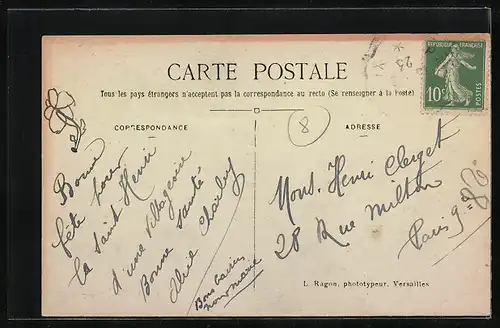 CARTE POSTALE
Tous les pays étrangers n'acceptent pas la correspondance au recto (Se renseigner à la Poste).
REPUBLIQUE FRANÇAISE
10c
POSTES
23
8
CORRESPONDANCE
ADRESSE
Bonne
fête pour
la Saint-Henri
d'une villageoise
Bonne Santé
Bons baisers
Mons. Henri Clerget
28 Rue Milton
Paris 9e
L. Ragon, phototypeur, Versailles